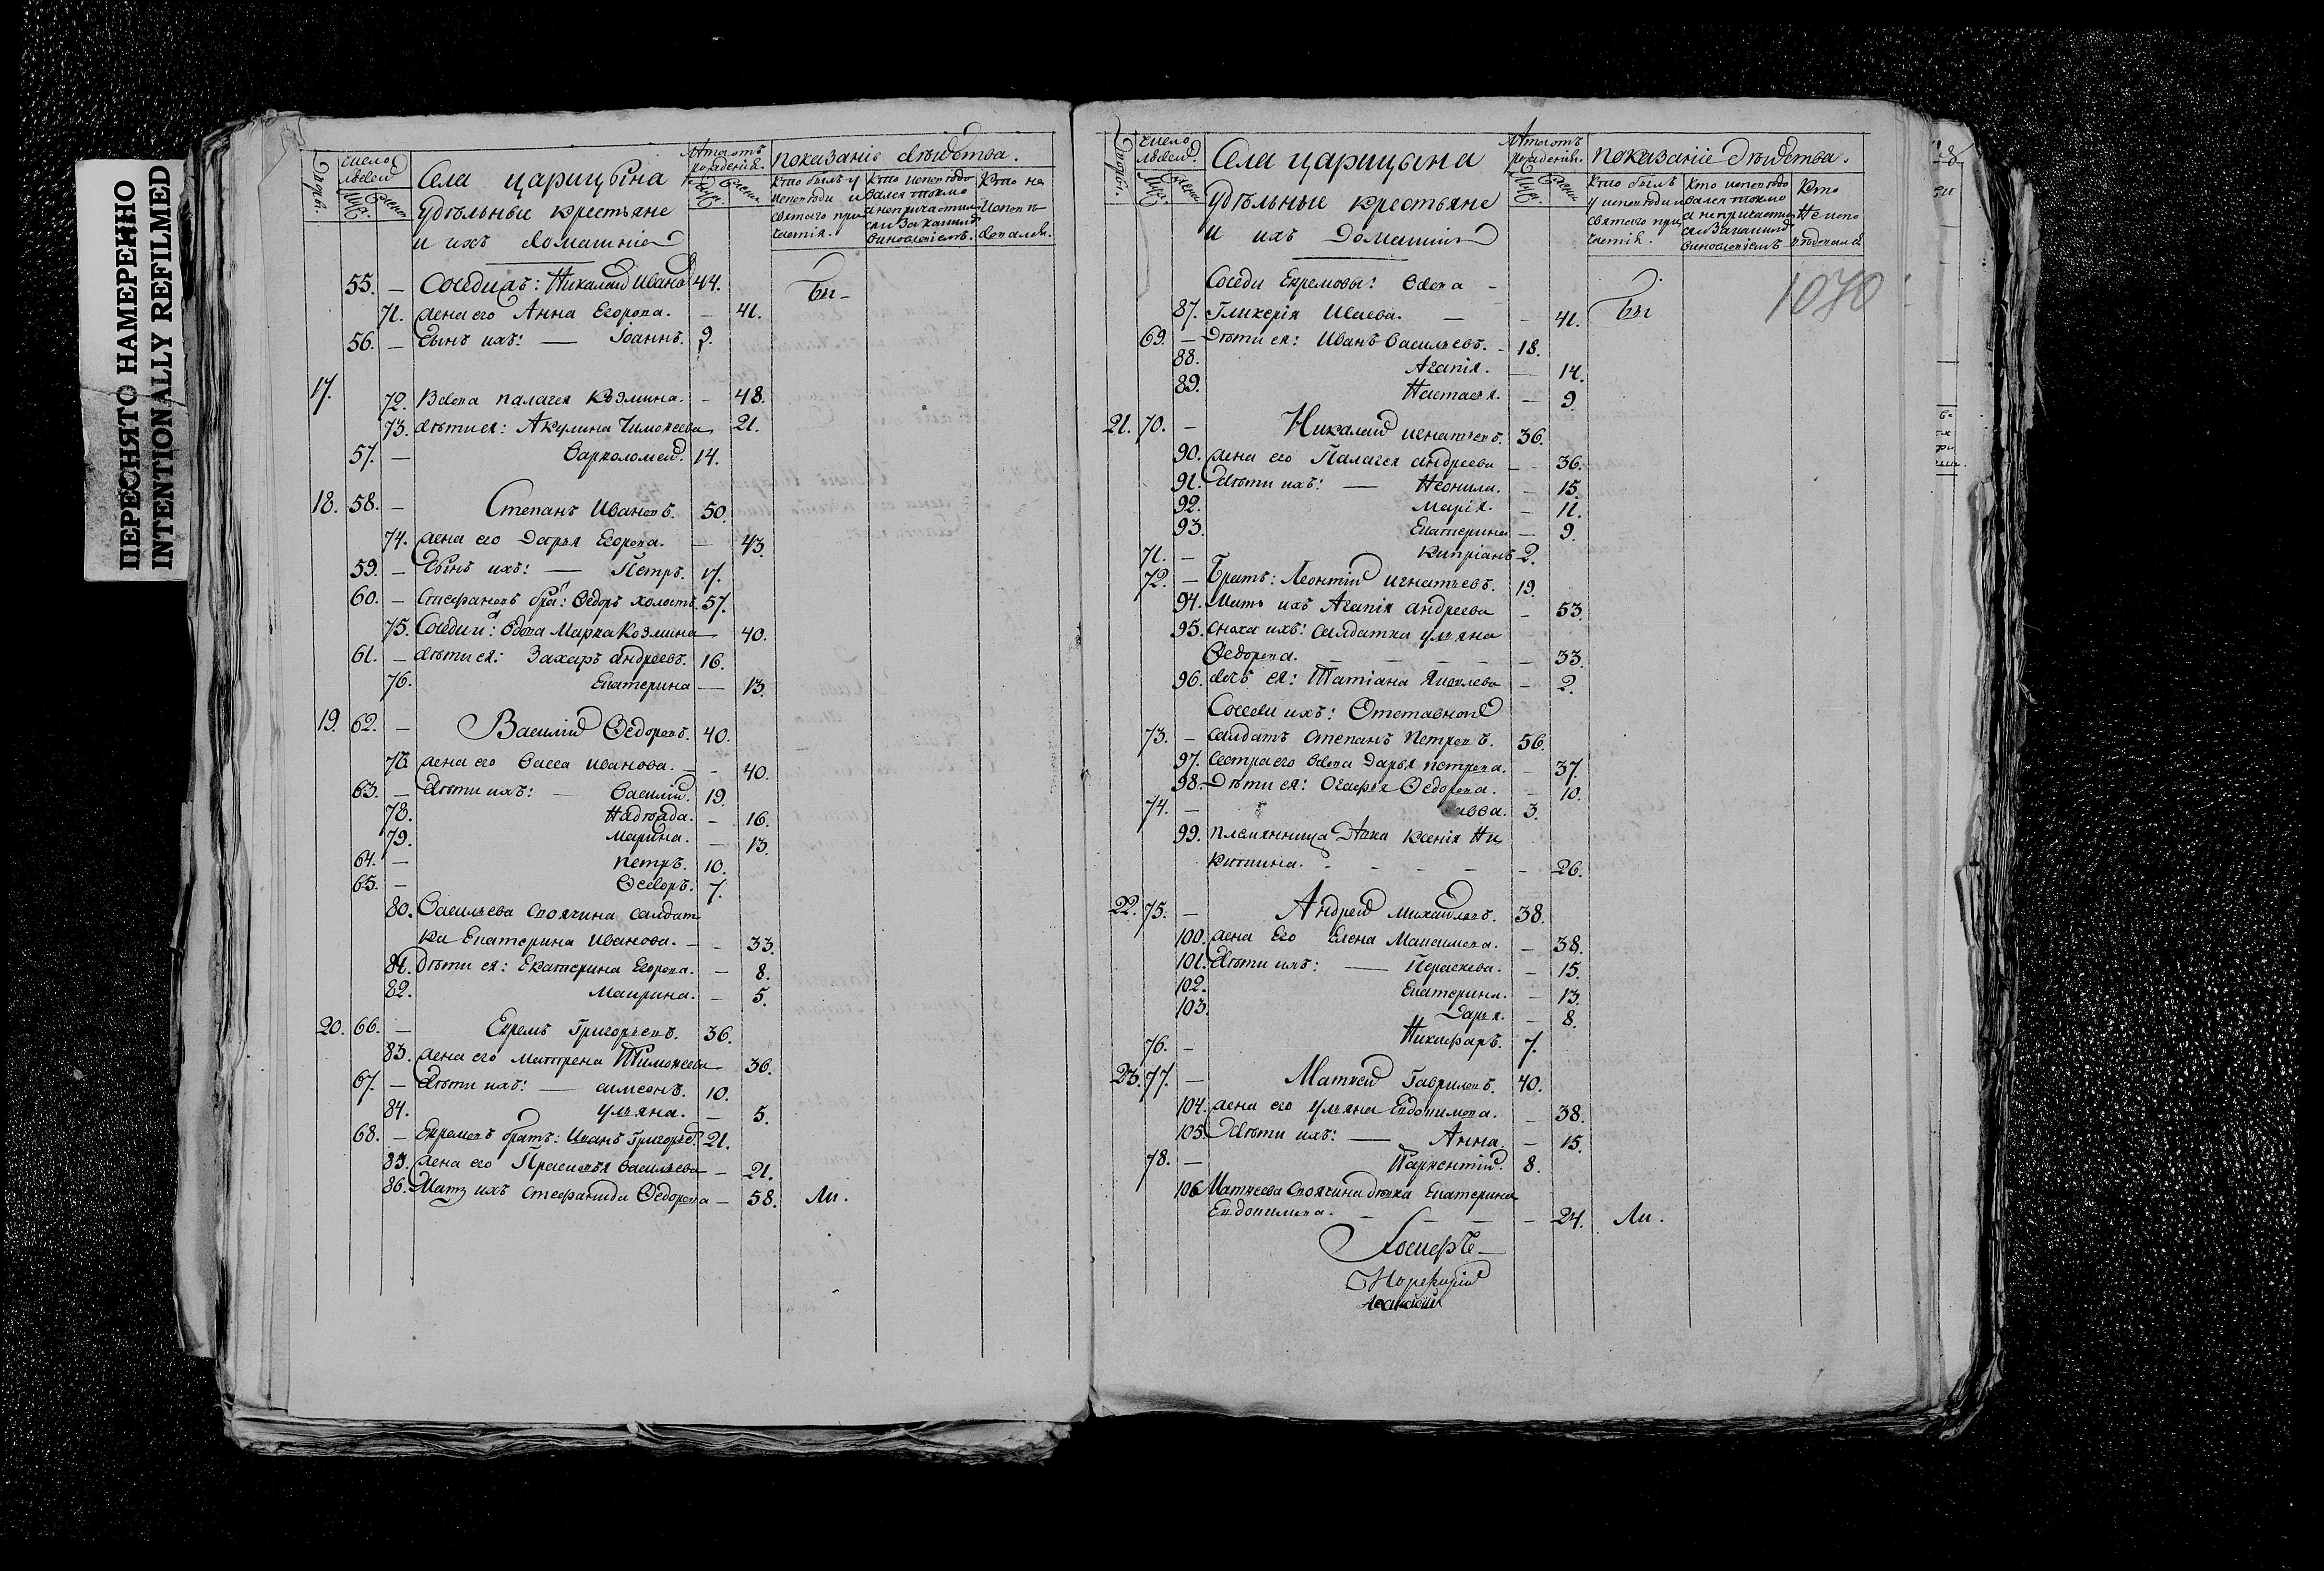 ПЕРЕСНЯТО НАМЕРЕННО
INTENTIONALLY REFILMED
число людей
Села царицына
Лѣта отъ рожденія.
показаніе дѣйства.
Удѣльные крестьяне
и ихъ домашніе
Кто былъ у исповѣди и святаго причастія.
Кто исповѣдовался токмо а непричастился и за какимъ виновеніемъ.
Кто не исповѣдовался.
55. — Соседи ихъ: Николай Иванов 44. бы
71. жена его Анна Егорова. — 41.
56. — Сынъ ихъ: — Іоаннъ. 9.
17. 72. Вдова палагея Козмина. — 48.
73. дѣти ея: Акулина Тимоѳеева 21.
57. — Варѳоломей. 14.
18. 58. — Степанъ Ивановъ. 50.
74. жена его Дарья Егорова. — 43.
59. — Сынъ ихъ: — Петръ. 17.
60. — Стефановъ братъ: Ѳедоръ холостъ. 57.
75. Соседи и: вдова Марѳа Козмина 40.
61. — дѣти ея: Захаръ андреевъ. 16.
76. Екатерина — 13.
19. 62. — Василій Ѳедоровъ. 40.
76. жена его Васса иванова. — 40.
63. — дѣти ихъ: — Василій. 19.
78. Надежда. — 16.
79. Марина. — 13.
64. — петръ. 10.
65. — Ѳедоръ. 7.
80. Васильева своячина салдат
ка Екатерина иванова. — 33.
81. Дѣти ея: Екатерина Егорова. — 8.
82. Маирина. — 5.
20. 66. — Ефремъ Григорьевъ. 36.
83. жена его матрена Тимоѳеева 36.
67. — дѣти ихъ: — симеонъ. 10.
84. ульяна. — 5.
68. — Ефремовъ братъ: Иванъ Григорьев. 21.
85. жена его Прасковья васильева — 21.
86. Мать ихъ стефанида Ѳедорова — 58. ли.
число людей.
Села царицына
Лѣта отъ рожденія.
показаніе дѣйства.
Удѣльные крестьяне
и ихъ домашніе
Кто былъ у исповѣди и святаго причастія.
Кто исповѣдовался токмо а непричастился и за какимъ виновеніемъ
Кто не исповѣдовался
1070
Соседи Ефремовы: вдова —
87. Гликерія Исаева. — — 41. бы
69. — Дѣти ея: Иванъ Васильевъ. — 18.
88. Агапія. — 14.
89. Настасья. — 9.
21. 70. — Николай игнатьевъ. 36.
90. жена его Палагея андреева — 36.
91. дѣти ихъ: — Неонила. — 15.
92. Марія. — 11.
93. Екатерина — 9.
71. — Кипріанъ 2.
72. — Братъ: Леонтій игнатьевъ. 19.
94. Мать ихъ Агапія андреева — 53.
95. сноха ихъ: салдатка ульяна
Ѳедорова. — — — — 33.
96. дочь ея: Татіана Яковлева — 2.
Соседи ихъ: Отставной
73. — салдатъ степанъ петровъ. 56.
97. Сестра его вдова дарья петрова. — 37.
98. Дѣти ея: Огафья Ѳедорова. — 10.
74. — савва. 3.
99. племянница Дѣвка Ксенія Ни
китина. — — — — 26.
22. 75. — Андрей михайловъ. 38.
100. жена Его Елена Максимова. — 38.
101. дѣти ихъ: — Параскева. — 15.
102. Екатерина. — 13.
103. Дарья. — 8.
76. — Никифаръ. 7.
23. 77. — Матѳей Гавриловъ. 40.
104. жена его ульяна Евдокимова. — 38.
105. Дѣти ихъ: — Анна. — 15.
78. — Парѳентій. 8.
106. Матѳеева своячина дѣвка Екатерина
Евдокимова. — — — — 24. ли.